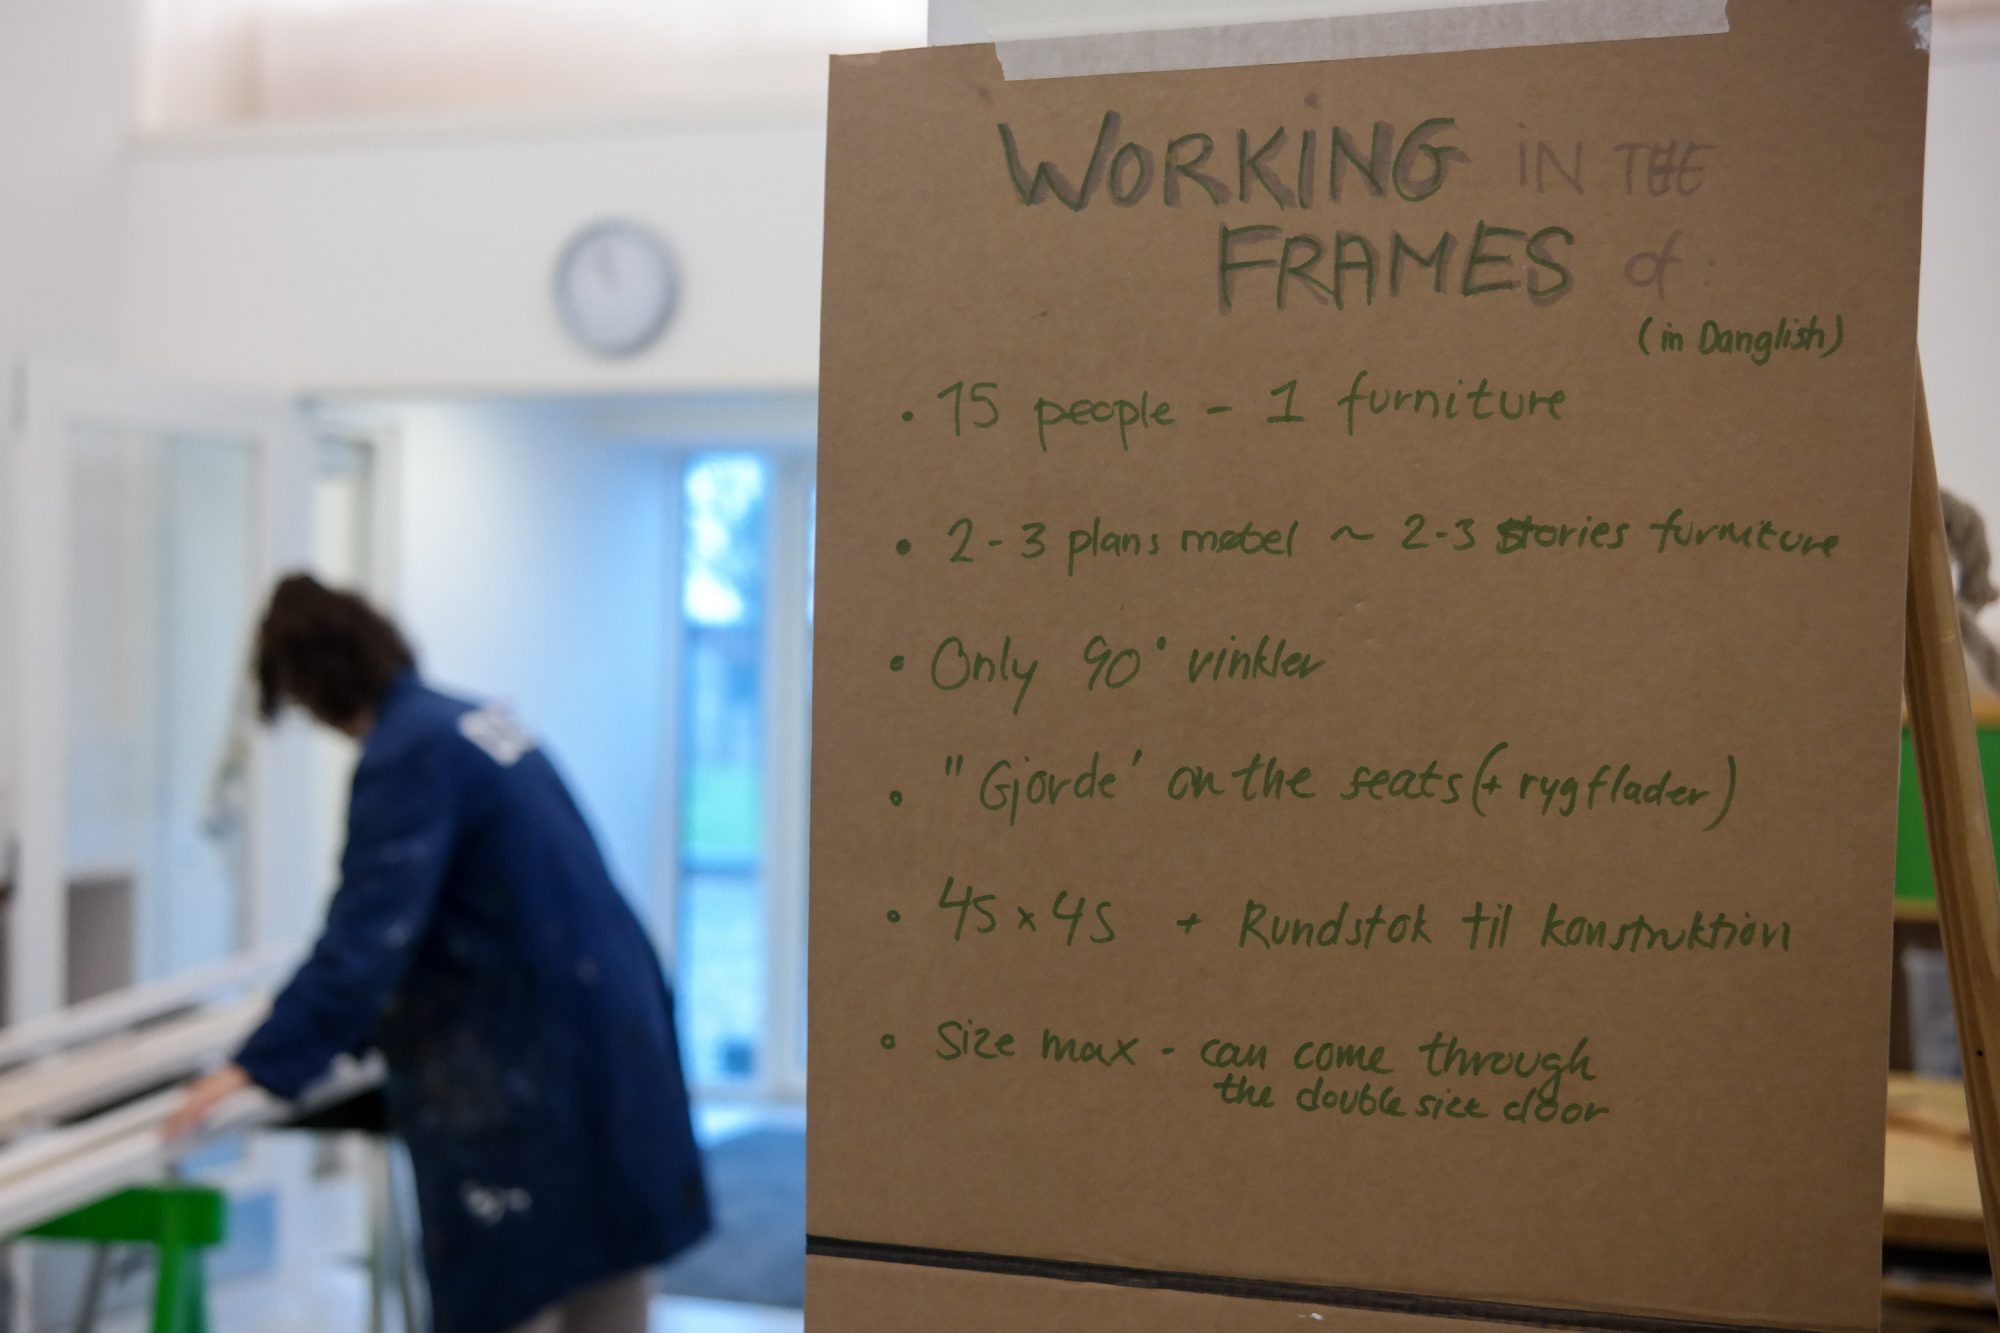 WORKING IN THE
FRAMES of:
(in Danglish)
• 15 people - 1 furniture
• 2-3 plans møbel ~ 2-3 stories furniture
• Only 90° vinkler
• "Gjorde' on the seats (+ rygflader)
• 45 x 45 + Rundstok til konstruktion
• Size max - can come through
the double size door